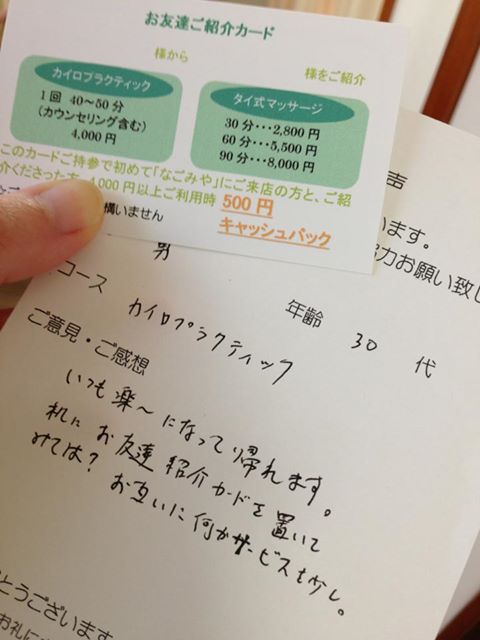 お友達ご紹介カード
様から
様をご紹介
カイロプラクティック
1回 40～50分
(カウンセリング含む)
4,000円
タイ式マッサージ
30分･･･2,800円
60分･･･5,500円
90分･･･8,000円
このカードご持参で初めて「なごみや」にご来店の方と、ご紹
介くださった方、4,000円以上ご利用時 500円
キャッシュバック
構いません
声
います。
力お願い致し
男
コース カイロプラクティック
年齢 30 代
ご意見・ご感想
いつも楽〜になって帰れます。
机にお友達紹介カードを置いて
みては？お互いに何かサービスも少し。
とうございます
お礼に